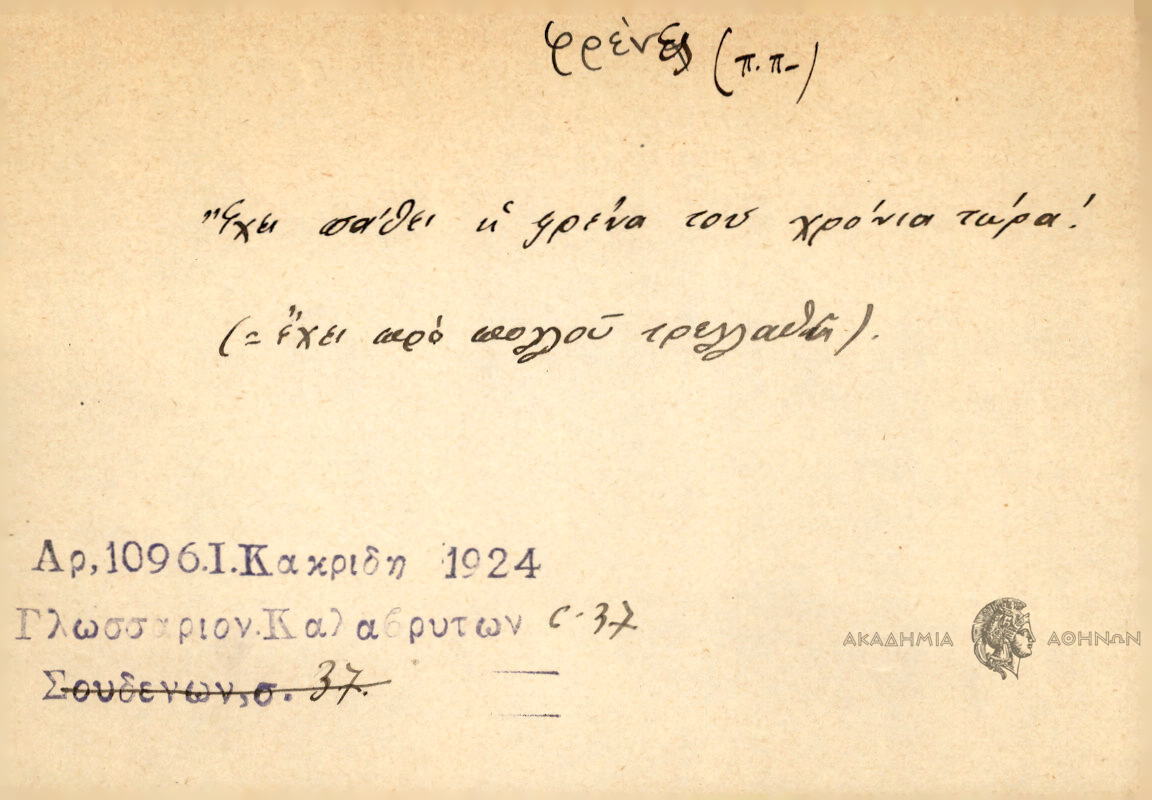 φρένες (π.π-)
Ἔχει πάθει ἡ φρένα του χρόνια τώρα!
(= ἔχει πρὸ πολλοῦ τρελλαθῆ).
Αρ,1096.Ι.Κακριδη 1924
Γλωσσαριον.Καλαβρυτων σ. 37
Σουδενων,σ. 37.
ΑΚΑΔΗΜΙΑ ΑΘΗΝΩΝ